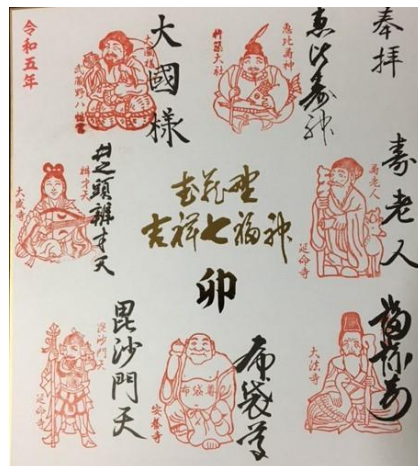 奉拝
恵比寿神
恵比寿神
杵築大社
大國様
大國様
武蔵野八幡宮
令和五年
寿老人
寿老人
延命寺
武蔵野
吉祥七福神
卯
井之頭辨才天
辨才天
大盛寺
福禄寿
大法寺
布袋尊
布袋尊
安養寺
毘沙門天
毘沙門天
延命寺